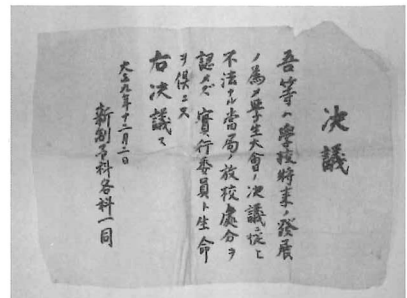 決議
吾等ハ學校將来ノ發展
ノ為メ學生大會ノ決議ニ従ヒ
不法ナル當局ノ放校處分ヲ
認メズ實行委員ト生命
ヲ倶ニス
右決議ス
大正九年十二月二日
新劍予科各科一同